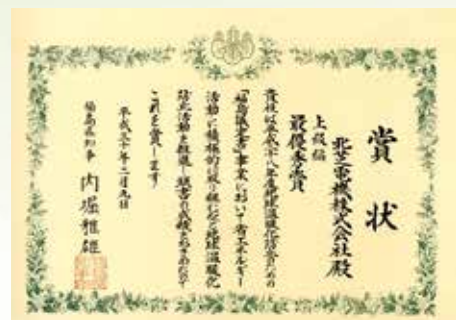 賞状
北芝電機株式会社殿
上級編
最優秀賞
貴社は平成二十八年度地球温暖化防止のための
「福島議定書」事業において省エネルギー
活動に積極的に取り組むなど地球温暖化
防止活動を推進し
これを賞します
平成三十年二月九日
福島県知事 内堀雅雄